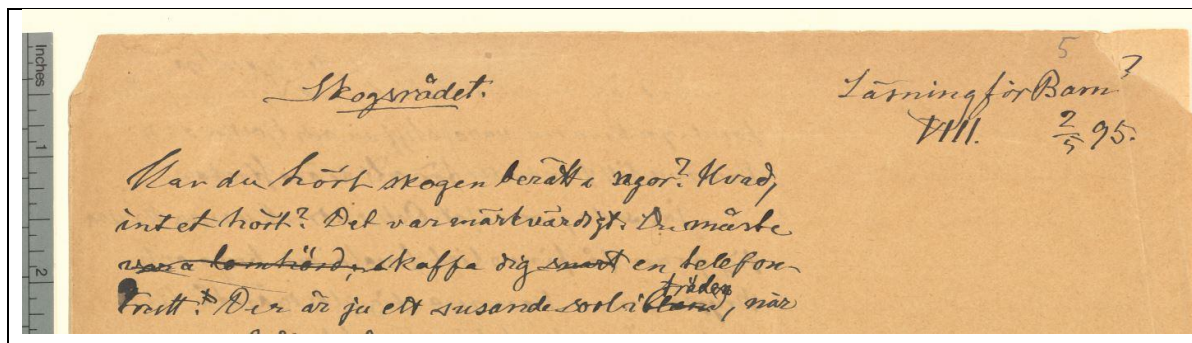 5
Skogsrådet. Läsning för Barn?
VIII. 2/5 95.
Har du hört skogen berätta sagor? Hvad,
intet hört? Det var märkvärdigt. Du måste
vara lomhörd, skaffa dig snart en telefon
trutt! Der är ju ett susande sorl i träden, när
Inches
1
2